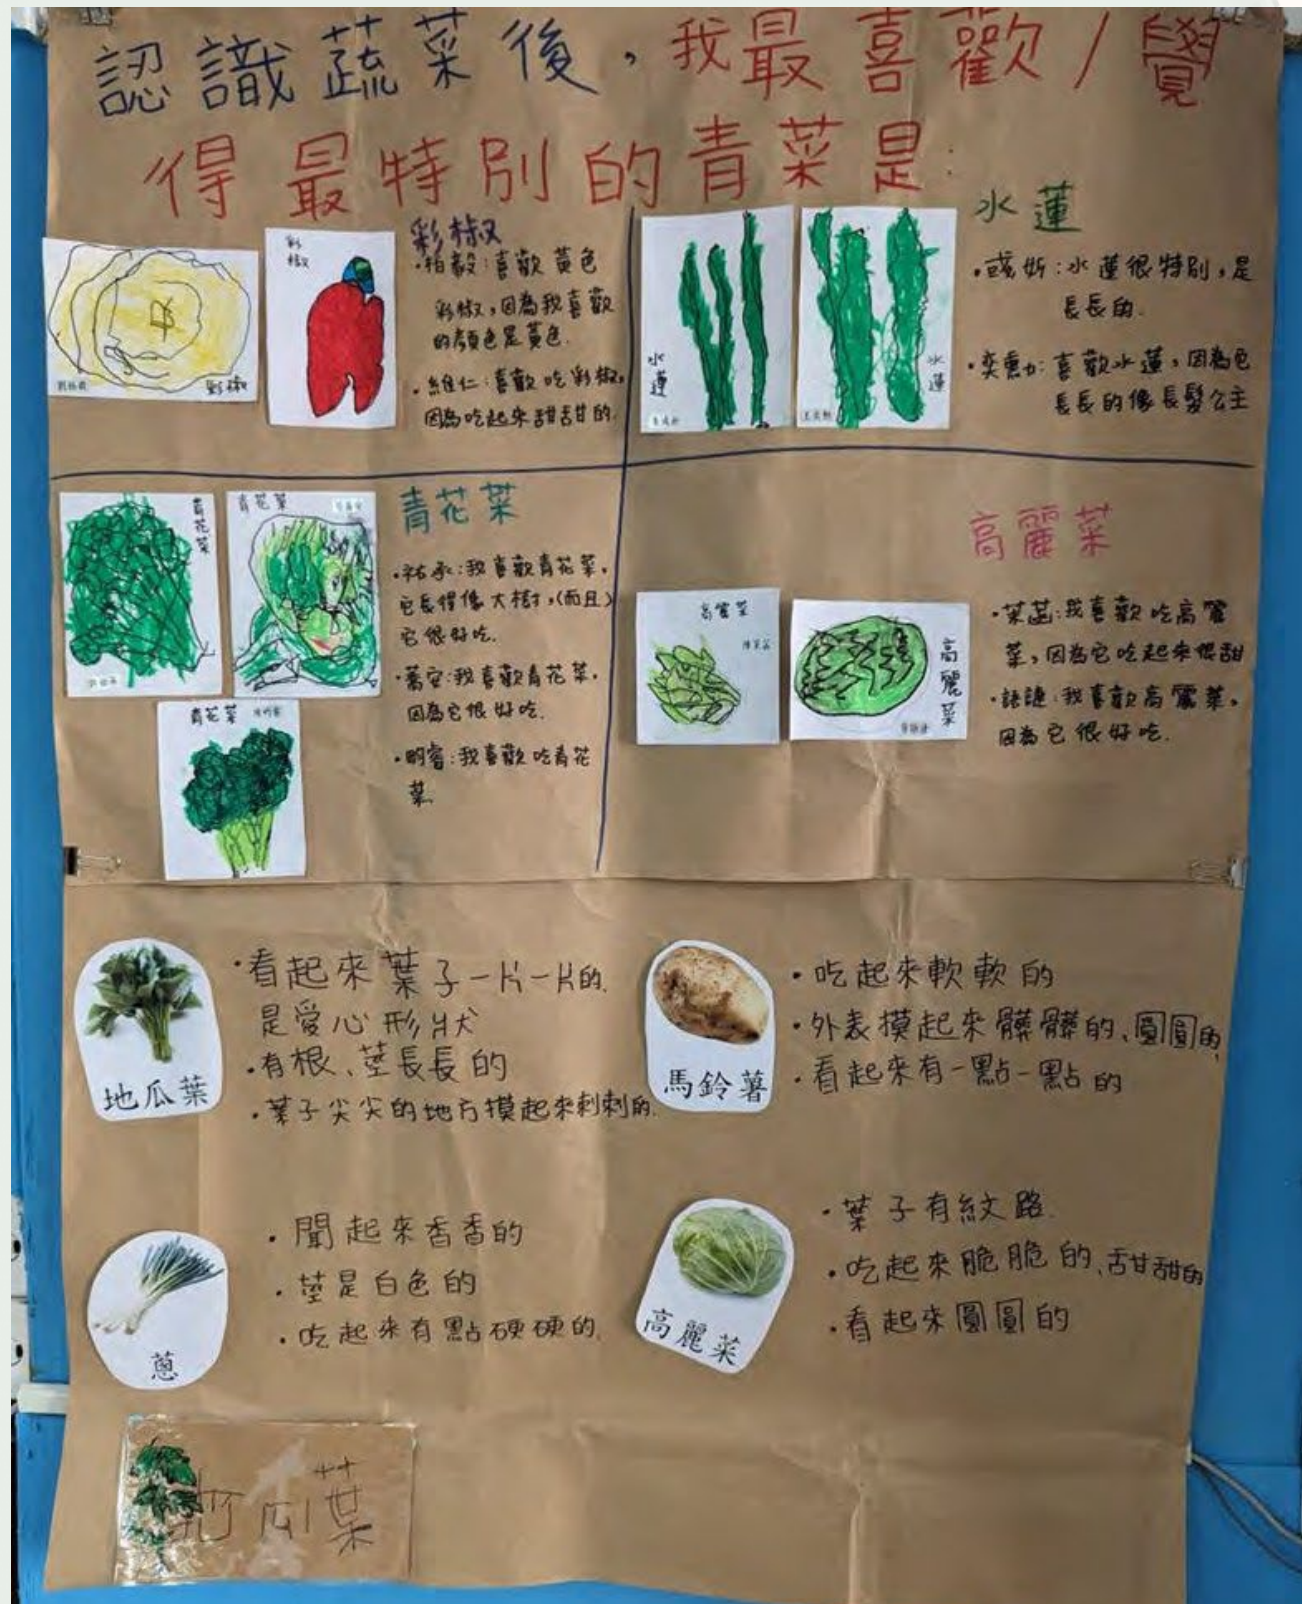 認識蔬菜後，我最喜歡/覺
得最特別的青菜是:
彩椒
彩
椒
彩椒
·柏毅:喜歡黃色
彩椒,因為我喜歡
的顏色是黃色.
·維仁:喜歡吃彩椒,
因為吃起來甜甜的.
水蓮
水蓮
水蓮
·苡妡:水蓮很特別,是
長長的.
喜歡水蓮,因為它
長長的像長髮公主
青花菜
青花菜
青花菜
青花菜
·祐承:我喜歡青花菜,
它長得像大樹,(而且)
它很好吃.
·喬安:我喜歡青花菜,
因為它很好吃.
·明睿:我喜歡吃青花
菜.
高麗菜
高麗菜
高麗菜
我喜歡吃高麗
菜,因為它吃起來很甜
我喜歡高麗菜,
因為它很好吃.
地瓜葉
·看起來葉子一片一片的.
是愛心形狀
·有根、莖長長的
·葉子尖尖的地方摸起來刺刺的.
馬鈴薯
·吃起來軟軟的
·外表摸起來髒髒的、圓圓的.
·看起來有一點一點的
蔥
·聞起來香香的
·莖是白色的
·吃起來有點硬硬的.
高麗菜
·葉子有紋路.
·吃起來脆脆的、甜甜的
·看起來圓圓的
地瓜葉